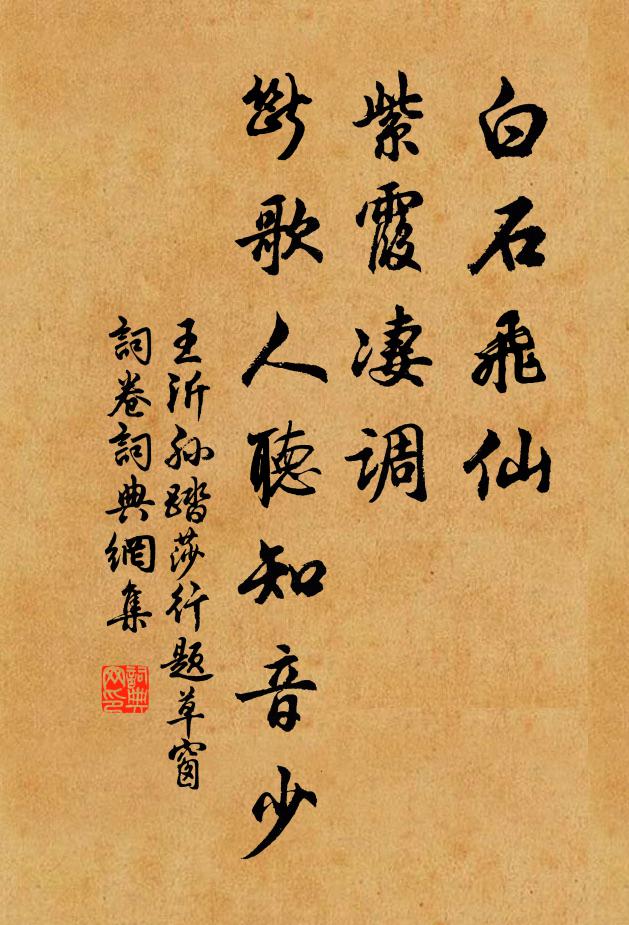 白石飛仙
紫霞凄调
断歌人聽知音少
王沂孙踏莎行题草窗
詞卷詞典網集
詞典网印